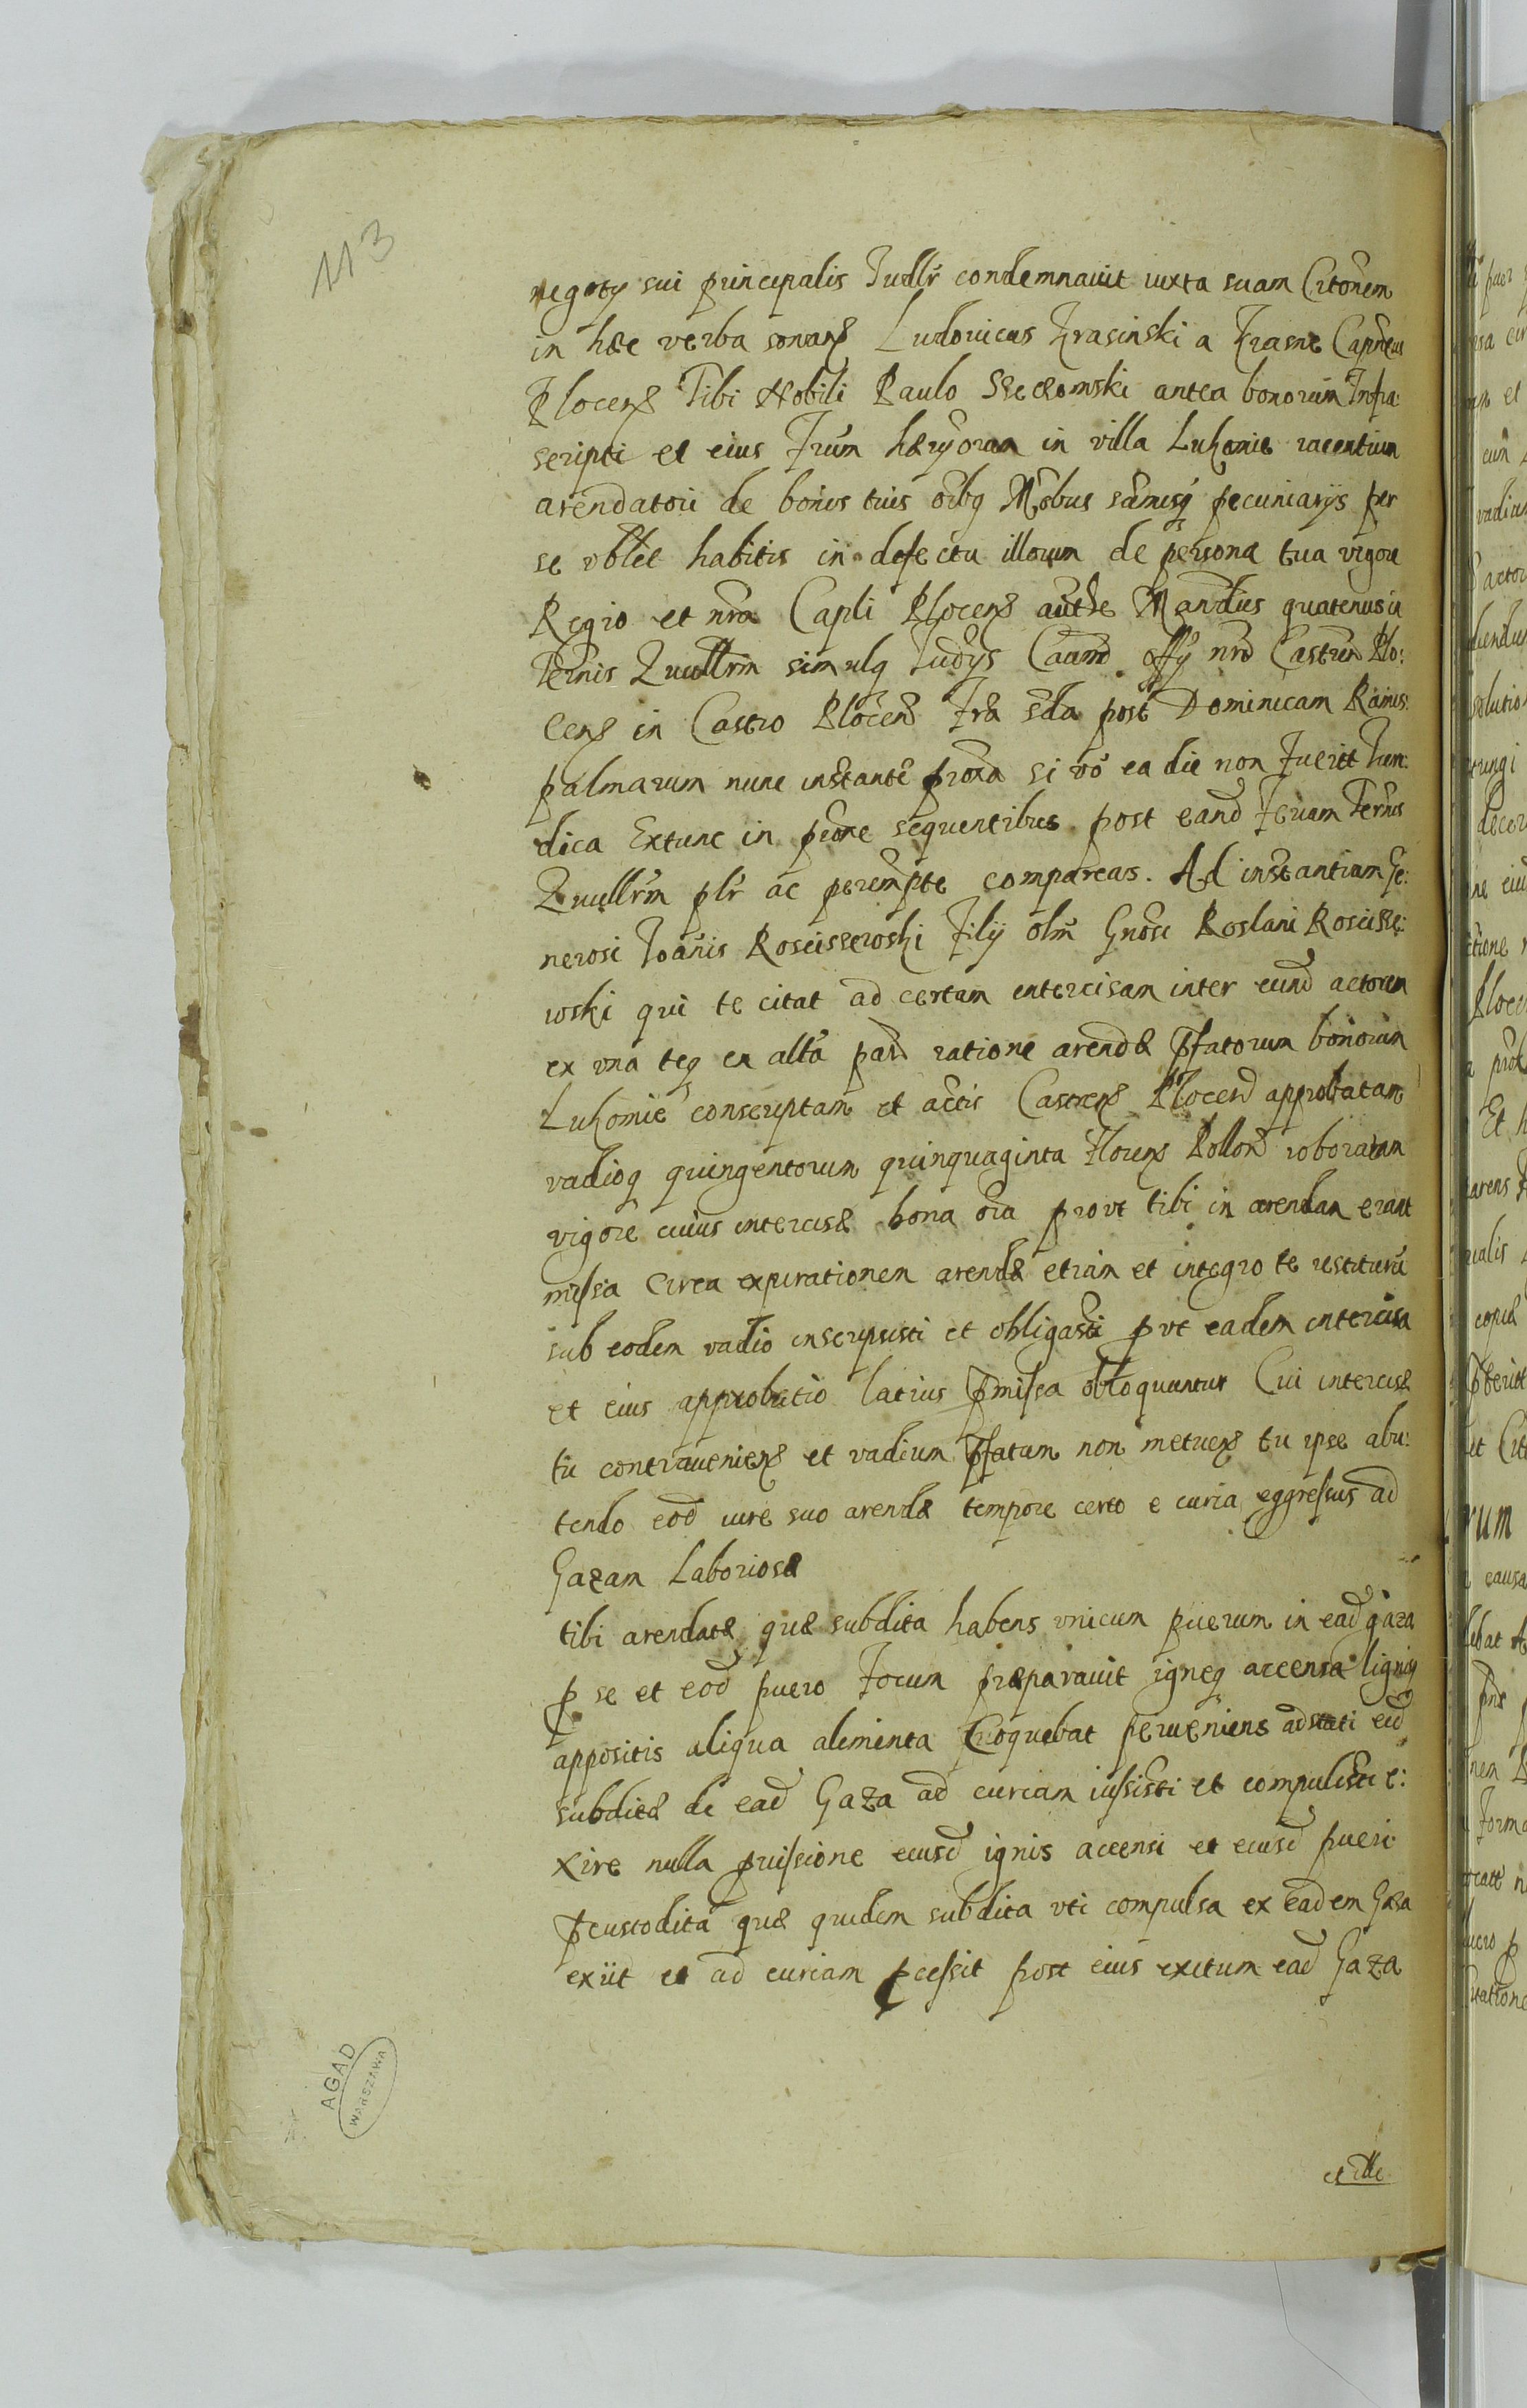 113
negoty sui principalis Iudlr condemnauit iuxta suam Citonem
in hæc verba sonans Ludouicus Krasinski a Krasne Capneus
Plocens Tibi Nobili Paulo antea bonorum Infra:
scripti et eius Frum hæryorum in villa Lukomie iacentium
arendatori de bonis tuis oibq Mobus sumisq pecuniarijs per
se vblet habitis in defectu illorum de persona tua vigore
Regio et nra Capli Plocens authe Mandus quatenus in
Ternis Quellrm simulq Iudys Caand offy nrd Castren Plo:
cens in Castro Plocend Fra sda post Dominicam Ramis:
palmarum nunc instante proxa si vo ea die non fuerit Iuri:
dica Extunc in prone sequentibus post eand Feriam Ternis
Quellrm plr ac perempte compareas. Ad instantiam Ge:
nerosi Ioanis Roscisseroski Filij olm Gnosi Roslani Rosciße:
roski qui te citat ad certam intercisam inter eund actorem
ex vna teq ex alta pard ratione arendæ pfatorum bonorum
Lukomie conscriptam et actis Castrens Plocend approbatam
vadioq quingentorum quinquaginta Florens Pollond roboratam
vigore cuius intercisæ bona oia prout tibi in arendam erant
missa Circa expirationem arendæ etiam et integro te restituru
sub eodem vadio inscripsisti et obligasti put eadem intercisa
et eius approbatio latius pmissa obloquuntur Cui intercisæ
tu contraueniens et vadium pfatum non metuens tu ipse abu:
tendo eod iure suo arendæ tempore certo e curia eggressus ad
Gazam Laboriosæ
tibi arendatæ quæ subdita habens vnicum puerum in ead gaza
p se et eod puero Focum præparauit igneq accensa lignisq
appositis aliqua alimenta Coquebat perueniens eid
subditæ de ead Gaza ad curiam iussisti et compulisti e:
xire nulla puissione eiusd ignis accensi et eiusd pueri
pcustodita quæ quidem subdita vti compulsa ex eadem Gaza
exijt et ad curiam pcessit post eius exitum ead Gaza
et ille
AGAD
WARSZAWA